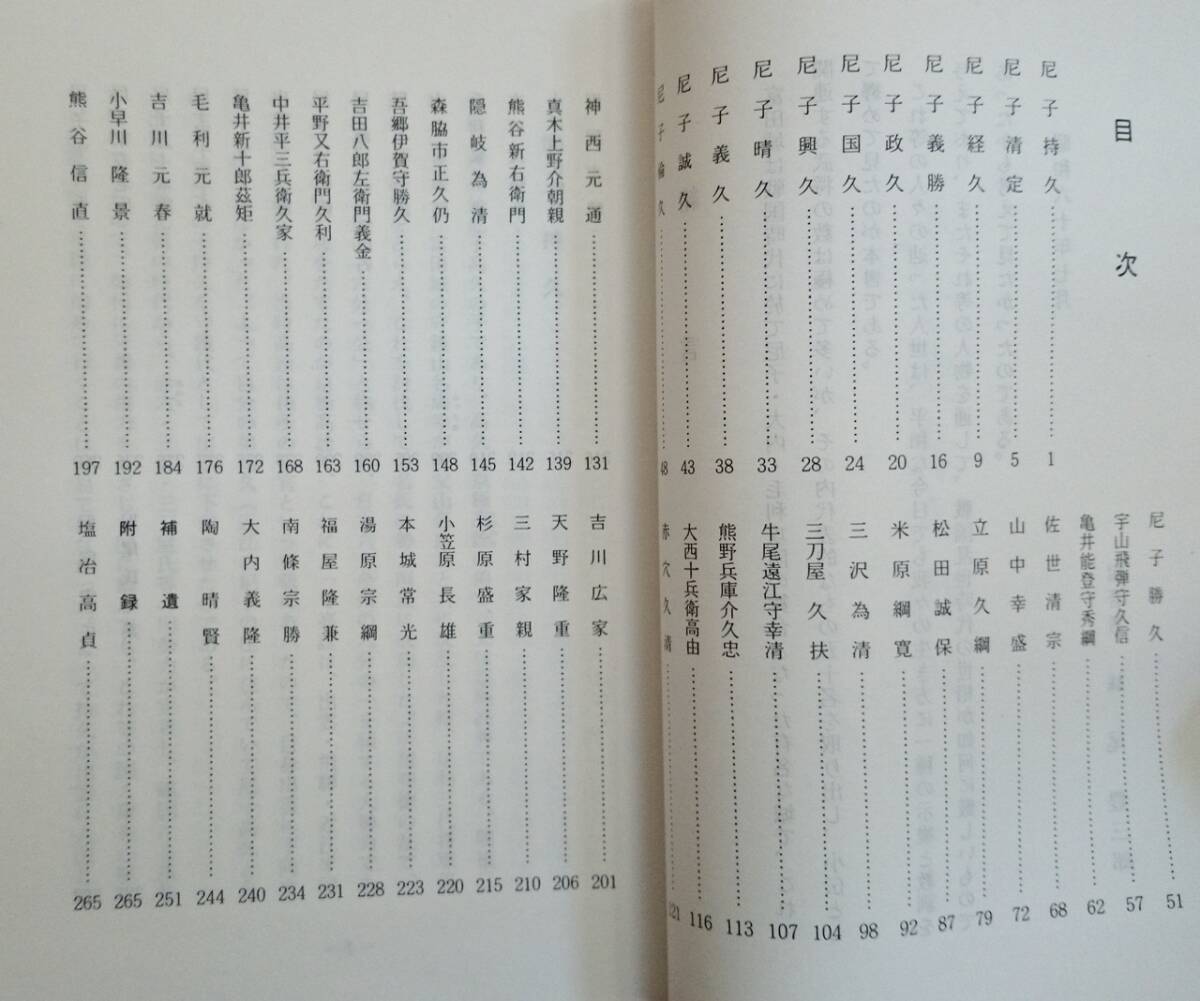 目次
尼子持久……1
尼子清定……5
尼子経久……9
尼子義勝……16
尼子政久……20
尼子国久……24
尼子興久……28
尼子晴久……33
尼子義久……38
尼子誠久……43
尼子倫久……48
尼子勝久……51
宇山飛弾守久信……57
亀井能登守秀綱……62
佐世清宗……68
山中幸盛……72
立原久綱……79
松田誠保……87
米原綱寛……92
三沢為清……98
三刀屋久扶……104
牛尾遠江守幸清……107
熊野兵庫介久忠……113
大西十兵衛高由……116
赤穴久清……121
神西元通……131
真木上野介朝親……139
熊谷新右衛門……142
隠岐為清……145
森脇市正久仍……148
吾郷伊賀守勝久……153
吉田八郎左衛門義金……160
平野又右衛門久利……163
中井平三兵衛久家……168
亀井新十郎茲矩……172
毛利元就……176
吉川元春……184
小早川隆景……192
熊谷信直……197
吉川広家……201
天野隆重……206
三村家親……210
杉原盛重……215
小笠原長雄……220
本城常光……223
湯原宗綱……228
福屋隆兼……231
南條宗勝……234
大内義隆……240
陶晴賢……244
補遺……251
附録……265
塩冶高貞……265